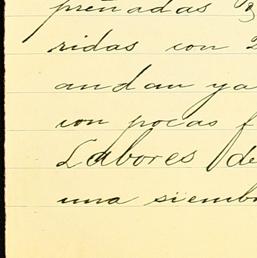 preñadas 3
ridas con 2
andan ya
con pocas f
Labores de
una siembr